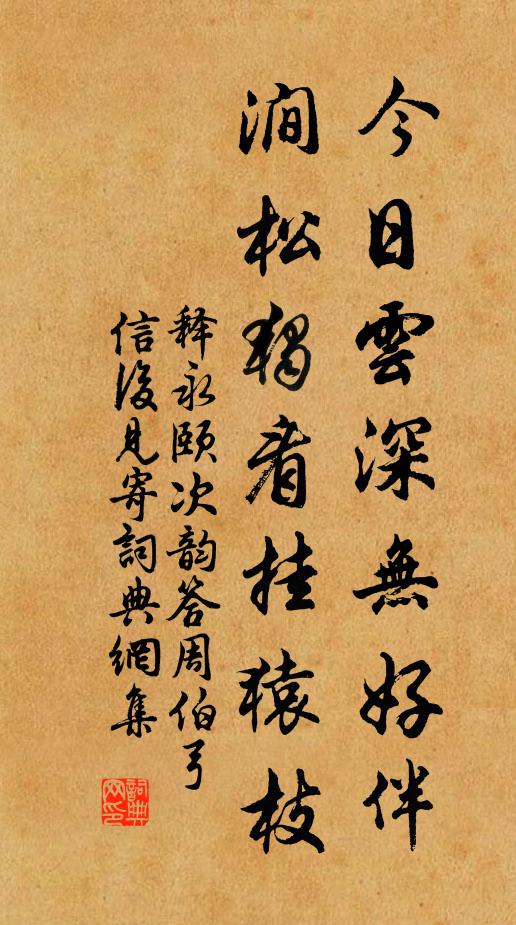 今日雲深無好伴
澗松獨看挂猿枝
释永頤次韵答周伯弓
信後見寄詞典網集
詞典
网印